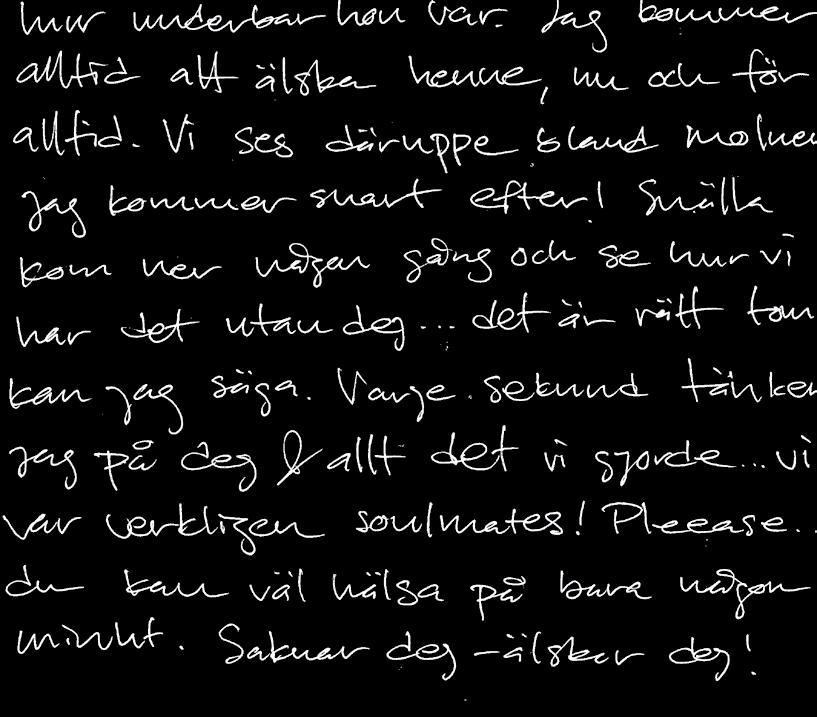 hur underbar hon var. Jag kommer
alltid att älska henne, nu och för
alltid. Vi ses däruppe bland molnen
jag kommer snart efter! Snälla
kom ner någon gång och se hur vi
har det utan deg... det är rätt tom
kan jag säga. Varje sekund tänker
jag på deg & allt det vi gjorde... vi
var verkligen soulmates! Pleease..
du kan väl hälsa på bara någon
minut. Saknar deg – älskar deg!